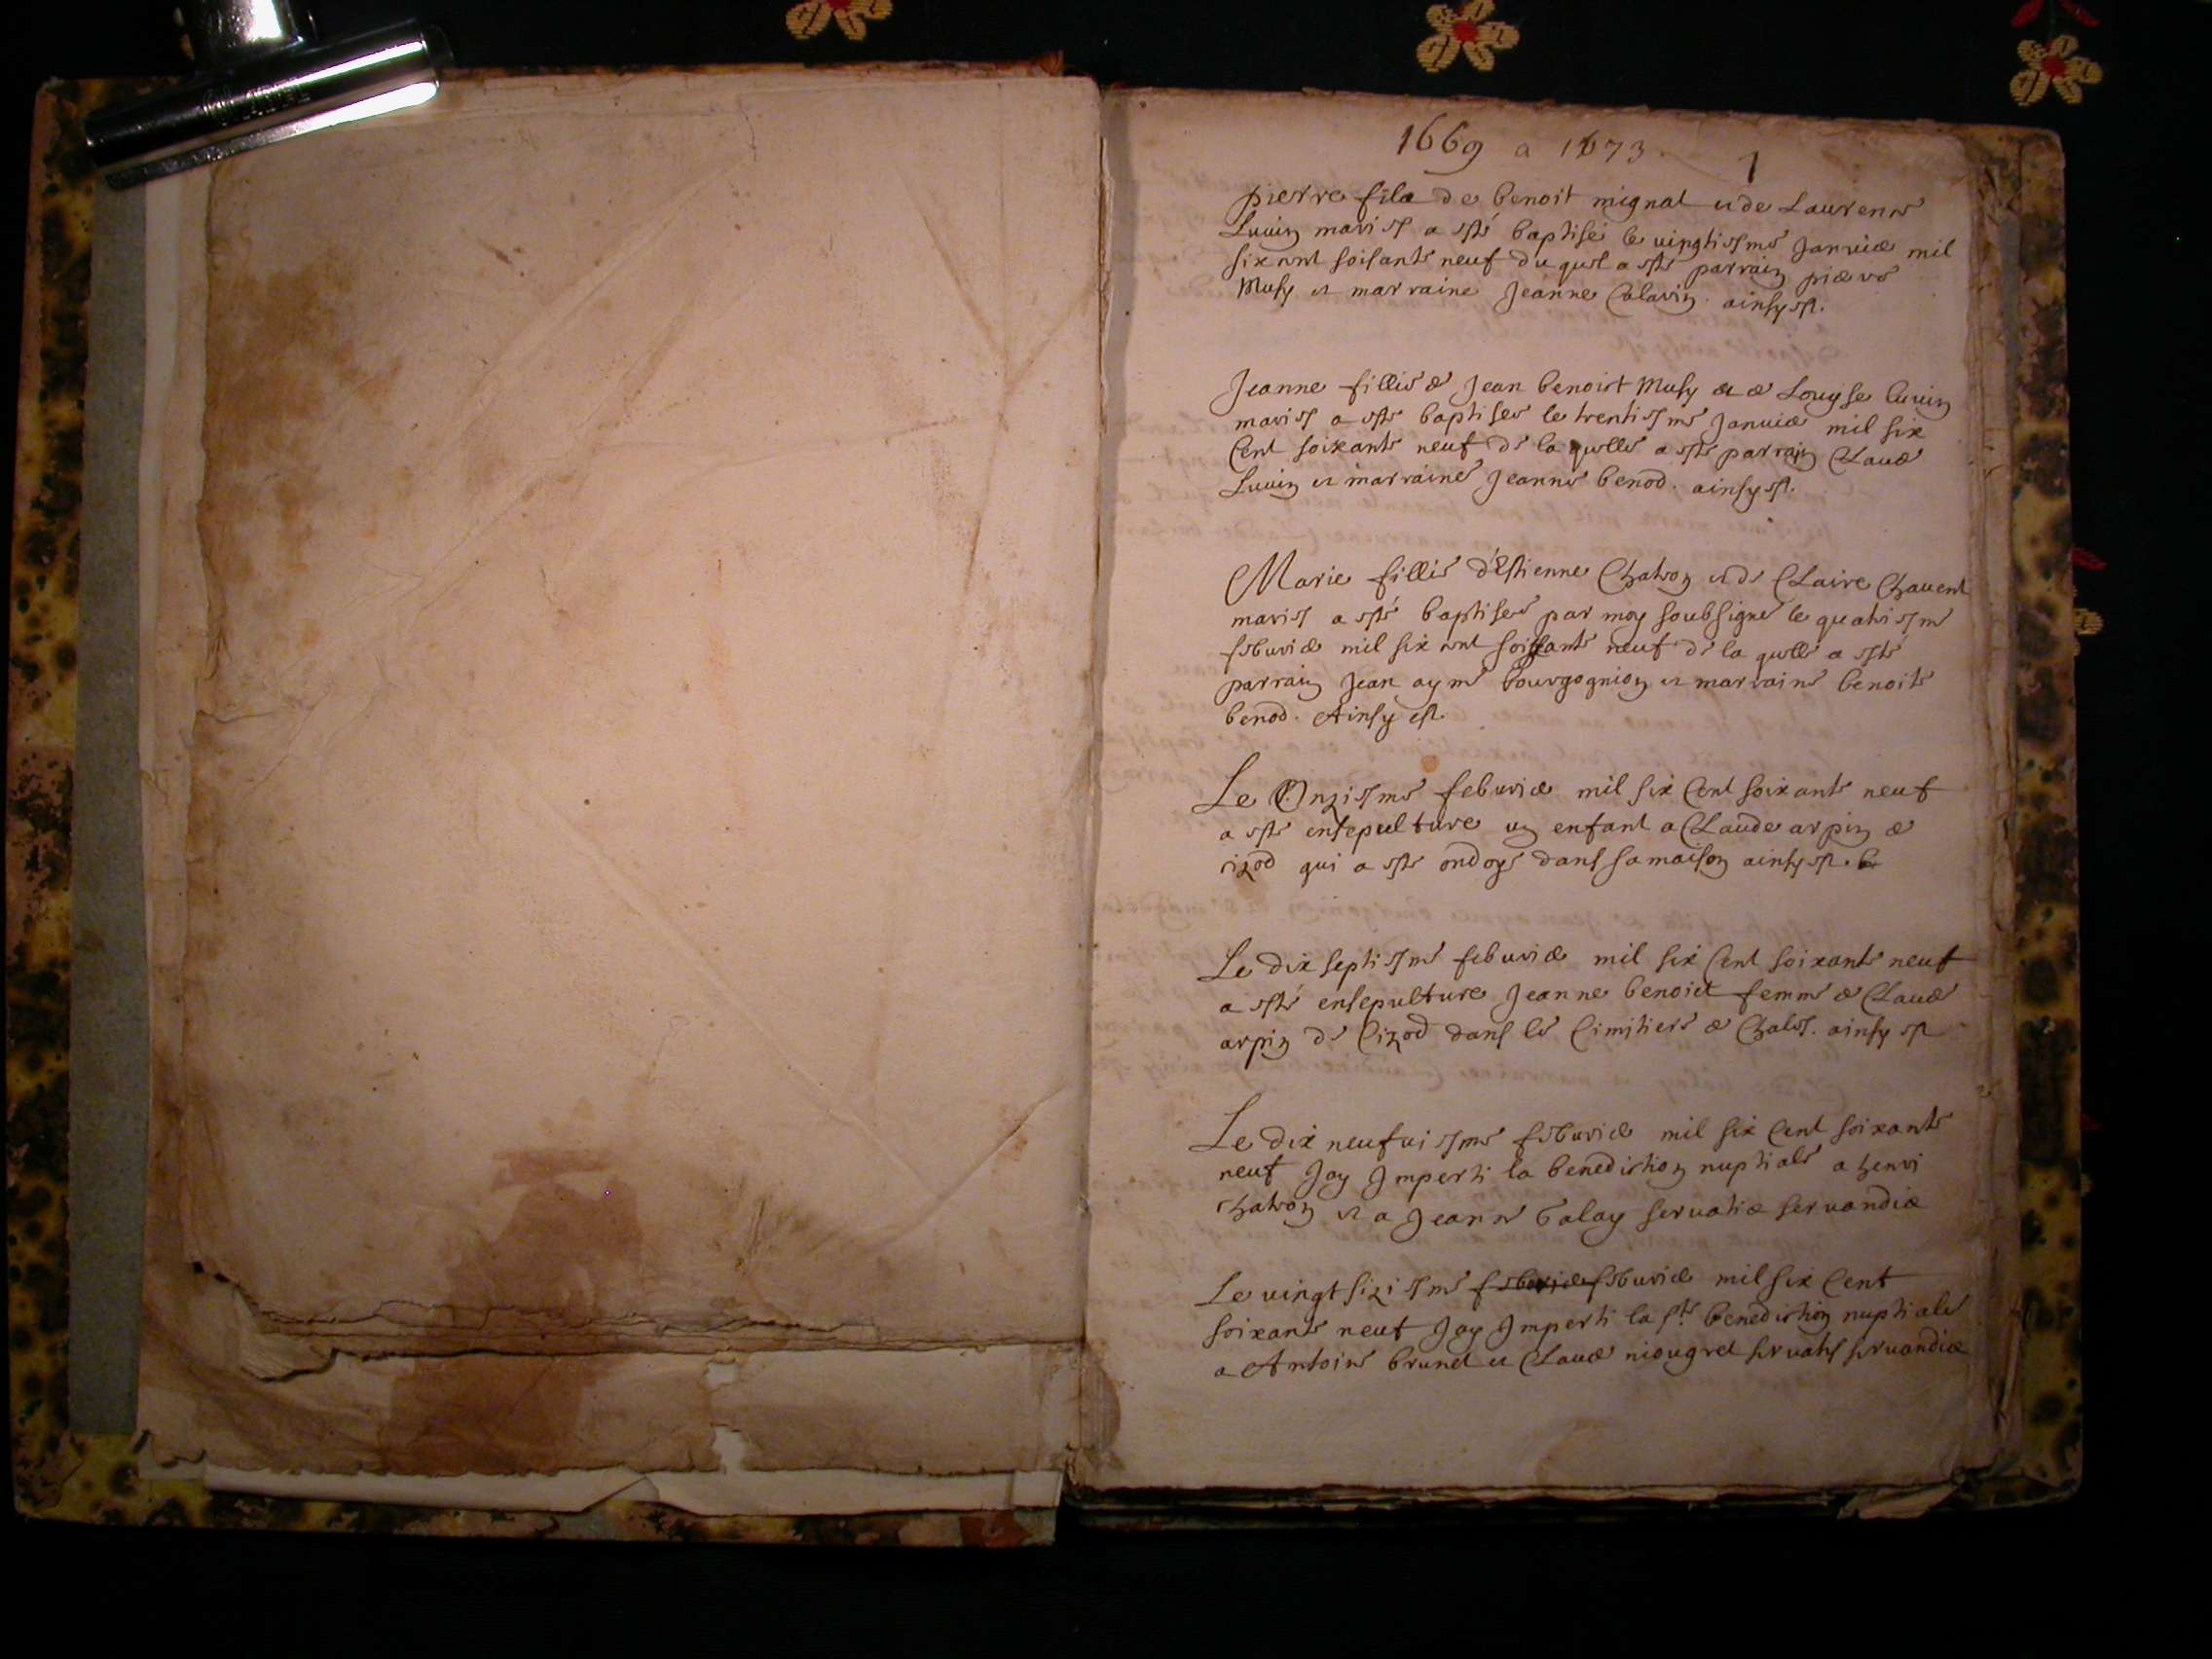 1669 a 1673
1
pierre filz de benoit mignat et de Laurence
Luvin mariés a esté baptisé le vingtiesme Janvier mil
six cent soisante neuf du quel a esté parrain pierre
Musy et marraine Jeanne Calavin. ainsy est.
Jeanne fillie de Jean benoict Musy et de Louyse luvin
mariés a este baptisee le trentiesme Janvier mil six
Cent soixante neuf de la quelle a este parrain Claude
Luvin et marraine Jeanne benod. ainsy est.
Marie fillie d'Estienne Chatron et de Claire Chavent
mariés a esté baptisee par moy soubsigné le quatriesme
febvrier mil six cent soissante neuf de la quelle a esté
parrain Jean aymé bourgognion et marraine benoite
benod. Ainsy est.
Le Onziesme febvrier mil six Cent soixante neuf
a esté ensepulture un enfant a Claude arpin de
cizod qui a este ondoye dans sa maison ainsy est.
Le dix septiesme febvrier mil six Cent soixante neuf
a esté ensepulture Jeanne benoict femme de Claude
arpin de Cizod dans le Cimitiere de Chales. ainsy est
Le dix neufviesme febvrier mil six Cent soixante
neuf Jay Imperti la benediction nuptiale a henri
chatron et a Jeanne balay servatis servandis
Le vingt siziesme febvrier febvrier mil six Cent
soixante neuf Jay Imperti la ste benediction nuptiale
a Antoine brunet et Claude niougret servatis servandis